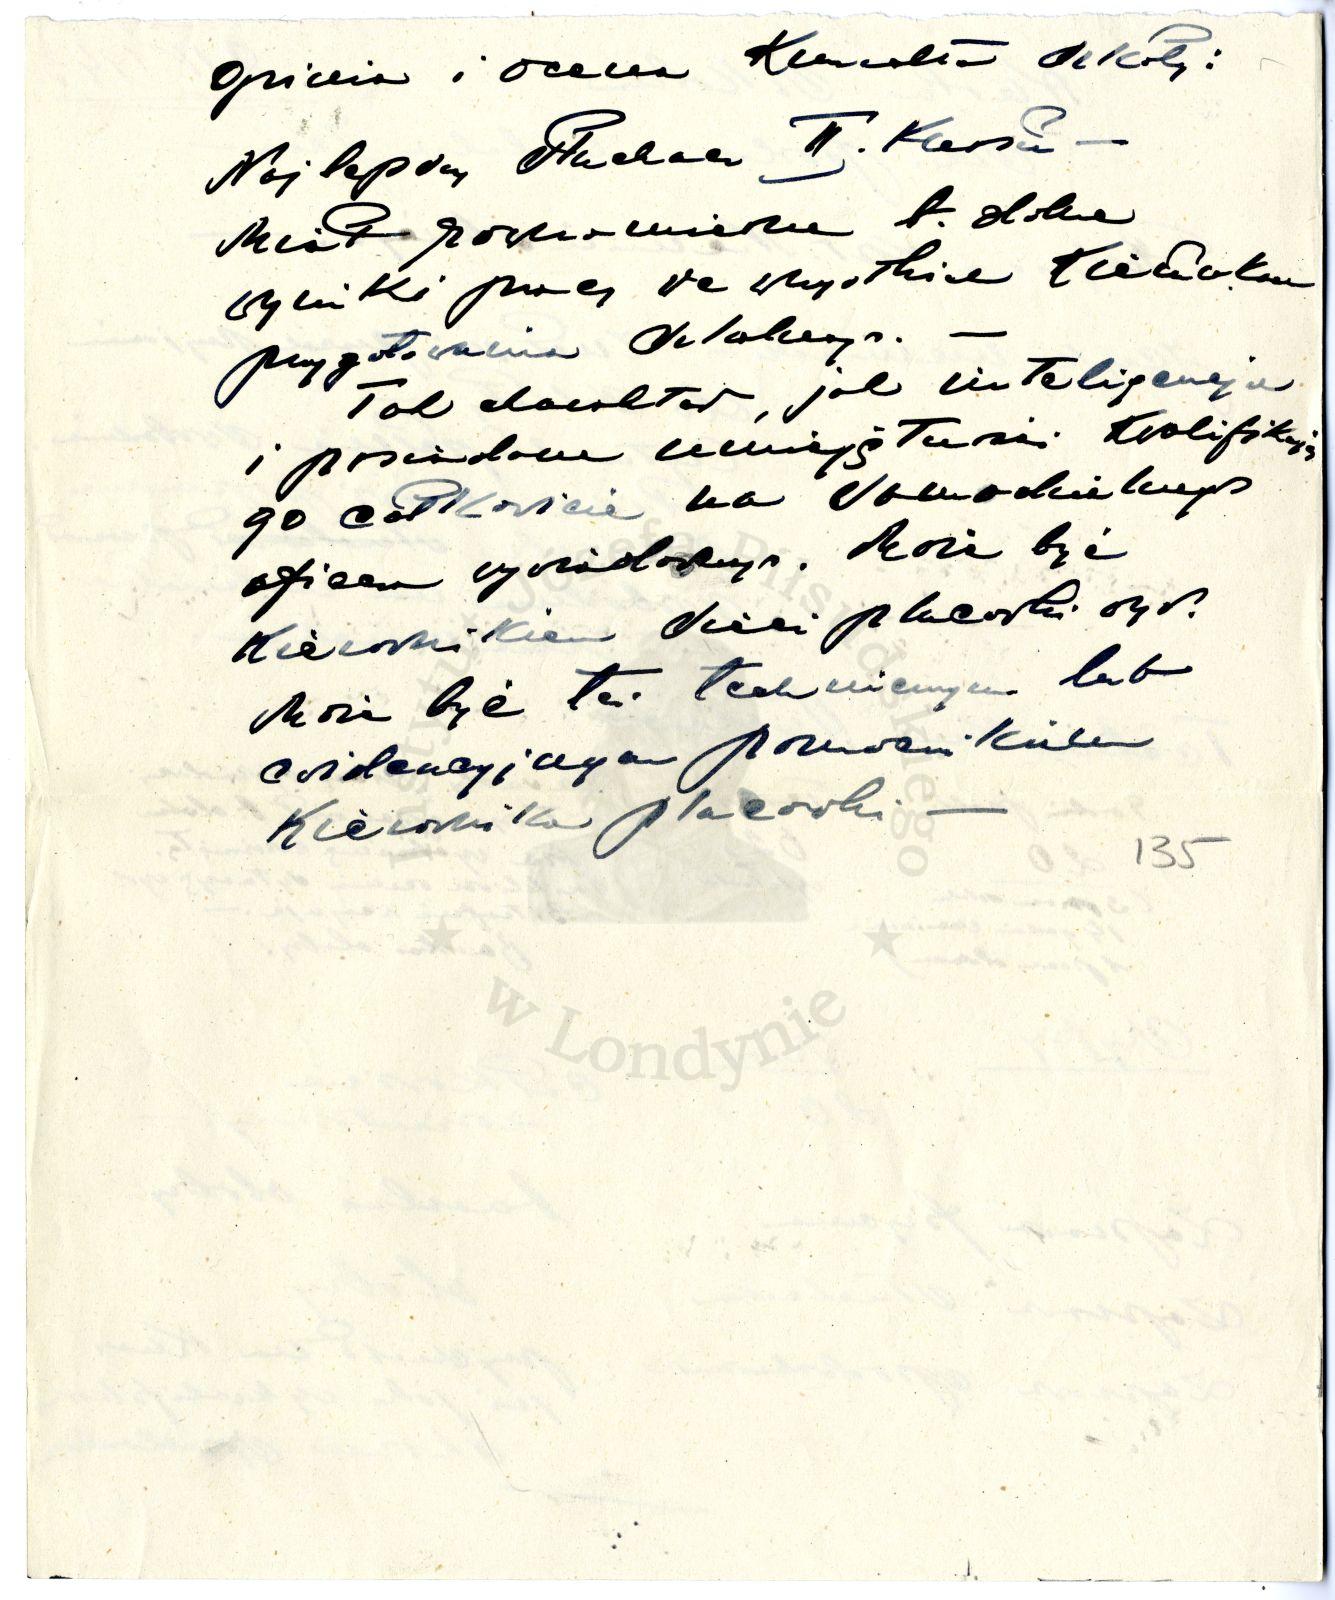 Opinia i ocena Kmdta Szkoły:
Najlepszy słuchacz II. Kursu —
Miał równomierne b. dobre
wyniki pracy we wszystkich kierunkach
przygotowania szkolnego. —
Tak charakter, jak inteligencja
i posiadane umiejętności kwalifikują
go całkowicie na samodzielnego
oficera wywiadowczego. Może być
kierownikiem sieci placówki wyw.
Może być też technicznym lub
ewidencyjnym pomocnikiem
kierownika placówki —
135
Instytut Józefa Piłsudskiego
w Londynie